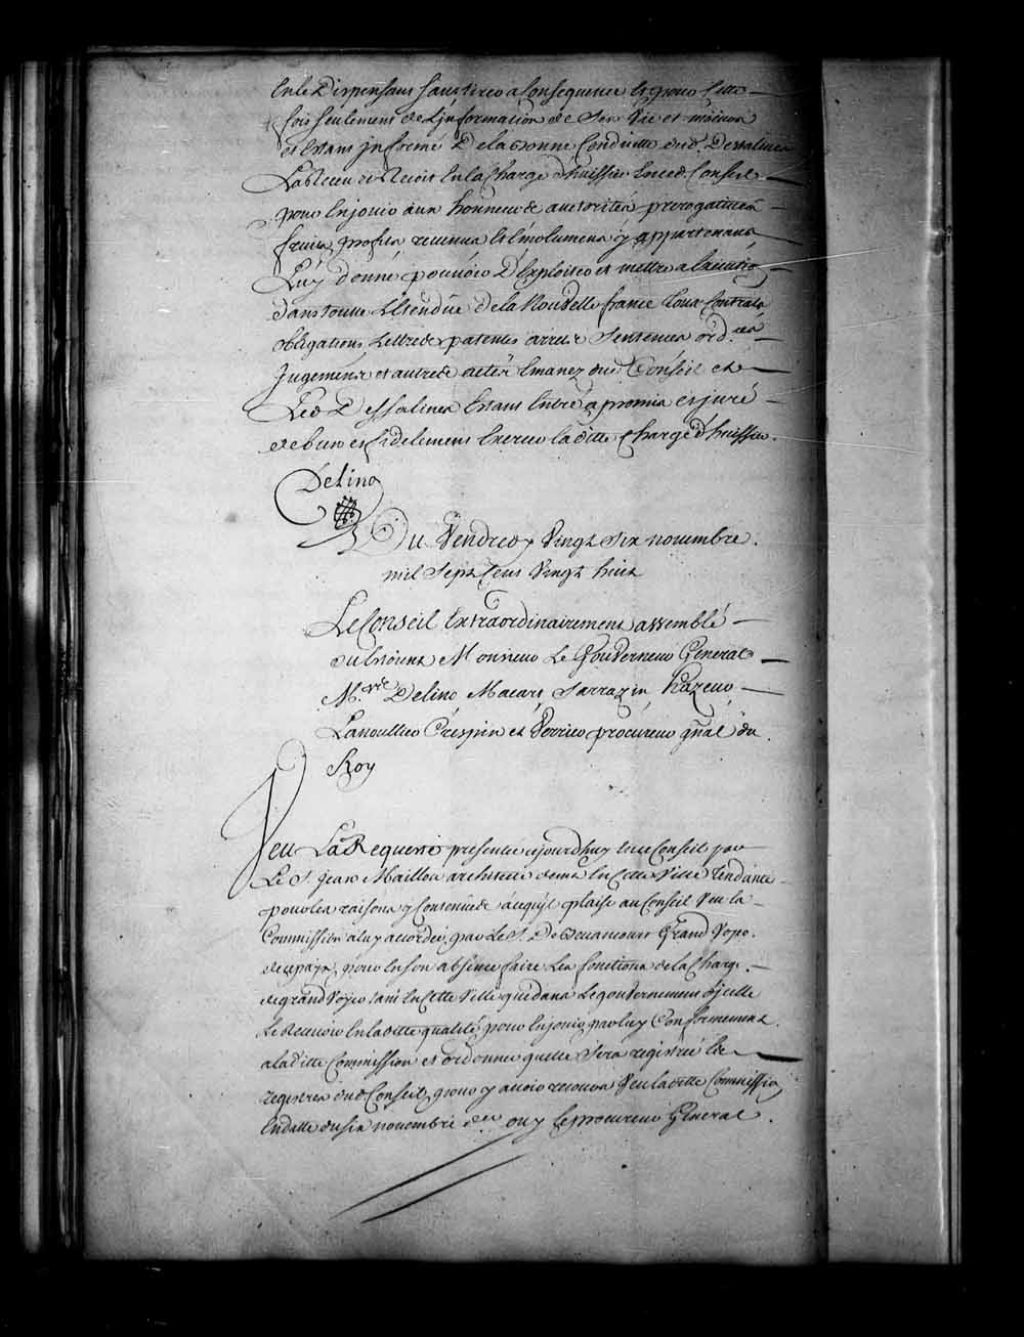 En le Dispensant sans tirer a Consequence Et pour Cette
fois seulement de L'jnformation de Ses Vie et moeurs
et Estant jnformé De la bonne Conduitte dud. Dessalines
La Receu et Reçoit En la Charge d'huissier En ce Conseil
pour En jouir aux honneurs autorités prerogatives
fruits profits revenus Et Emolumens y appartenans
Luy donne pouvoir D'Exploiter et mettre a Execution
dans toute L'Etendüe De la Nouvelle france tous Contrats
obligations Lettres patentes arrets Sentences ord.ces
Jugemens et autres actes Emanez dud. Conseil et
Led. Dessalines Estant Entré a promis et juré
de bien et fidelement Exercer la ditte Charge d'huissier.
Delino
Du Vendredy Vingt Six novembre
mil Sept Cent Vingt huit
Le Conseil Extraordinairement assemblé
ou Etoient Monsieur Le Gouverneur General
M.rs Delino Macart Sarrazin hazeur
Lanoullier Crespin et Verrier procureur gñal du
Roy
Veu La Requeste presentée aujourd'huy En ce Conseil par
Le S. Jean Maillou architecte dem.t En Cette Ville Tendante
pour les raisons y Contenües a cequ'jl plaise au Conseil Veu la
Commission a luy accordée par Le S. De Becancourt Grand Voyer
de ce pays, pour En son absence faire Les fonctions de la Charge
de grand Voyer tant En Cette Ville que dans Le gouvernement d'jcelle
Le Recevoir En laditte qualité pour En jouir par luy Conformement
a laditte Commission et ordonner quelle Sera registrée Es
registres dud. Conseil pour y avoir recours Veu laditte Commission
En datte du six novembre d.er ouy Le procureur General